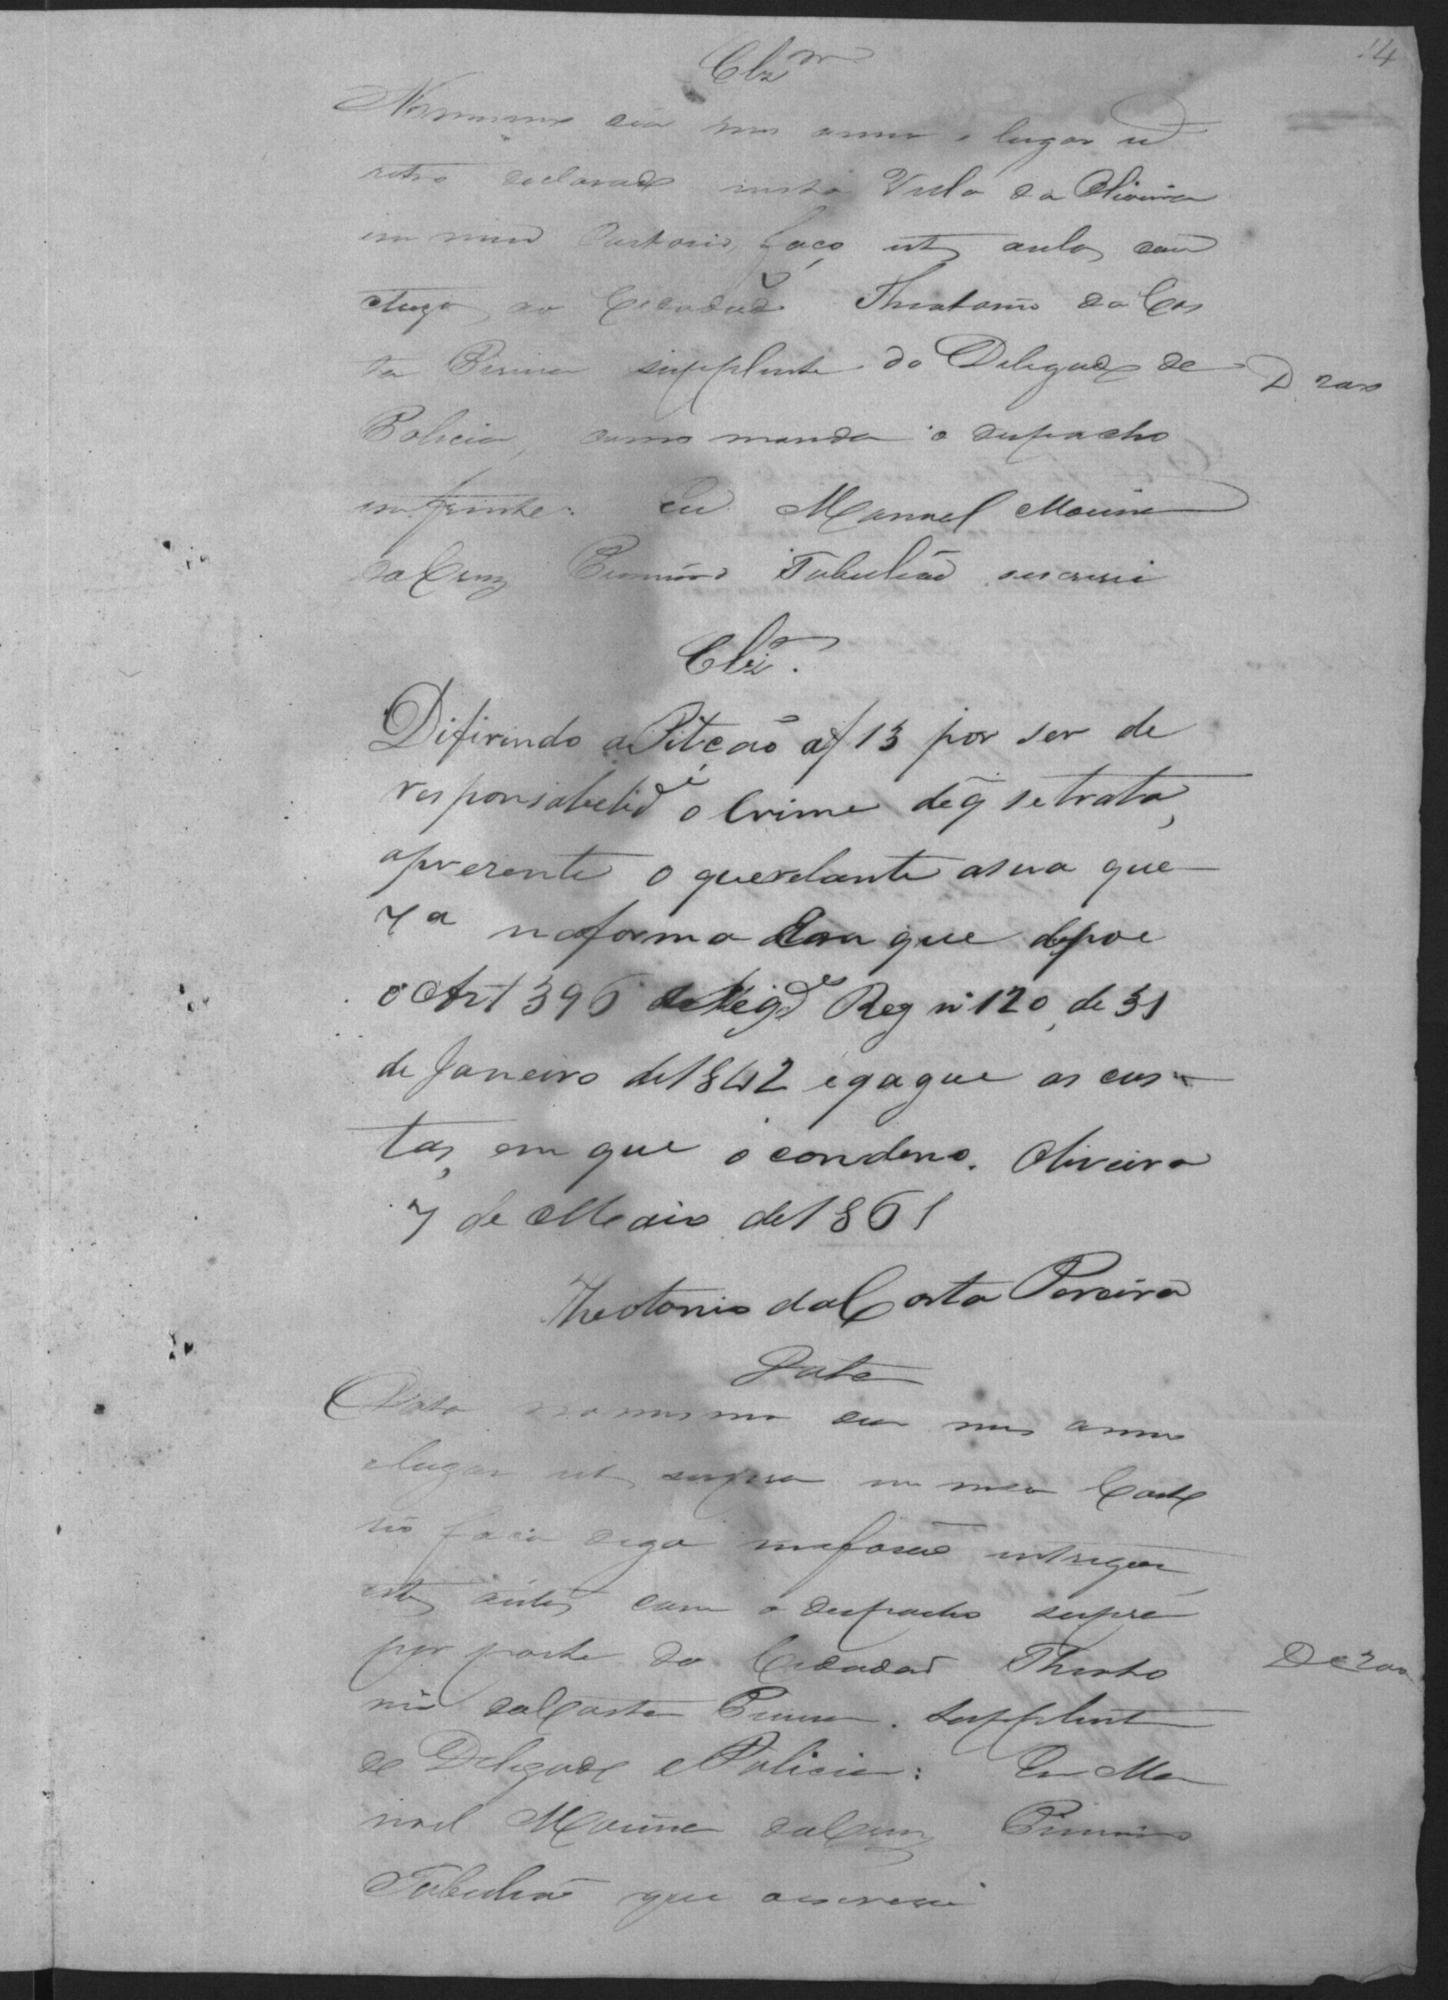 14
Clz.m
No mesmo dia mes anno e lugar ut
retro declarado nesta Villa da Oliveira
em meu Cartorio, faço estes autos con
cluzos ao Cidadaõ Theotonio da Cos
ta Pereira supplente do Delegado de
D 200
Policia, como manda o despacho
em frente. Eu Manoel Moreira
da Cruz Primeiro Tabeliaõ escrevi
Clz.m
Difirindo a Pitcaõ af 13 por ser de
responsabelid.e o Crime de q̃ se trata,
aprezente o querelante a sua que
na forma que
o Art 396 Reg n 120, de 31
de Janeiro de 1842 e pague as cus
tas, em que o condeno. Oliveira
7 de Maio de 1861
Theotonio da Costa Pereira
Data
Data no mesmo dia mes anno
e lugar ut supra em meu Carto
rio faço digo me foraõ entregues
estes autos com o despacho supra
por parte do Cidadaõ Theoto
De 200
nio da Costa Pereira supplente
de Delegado e Policia: Eu Ma
noel Moreira da Cruz Primeiro
Tabeliaõ que escrevi